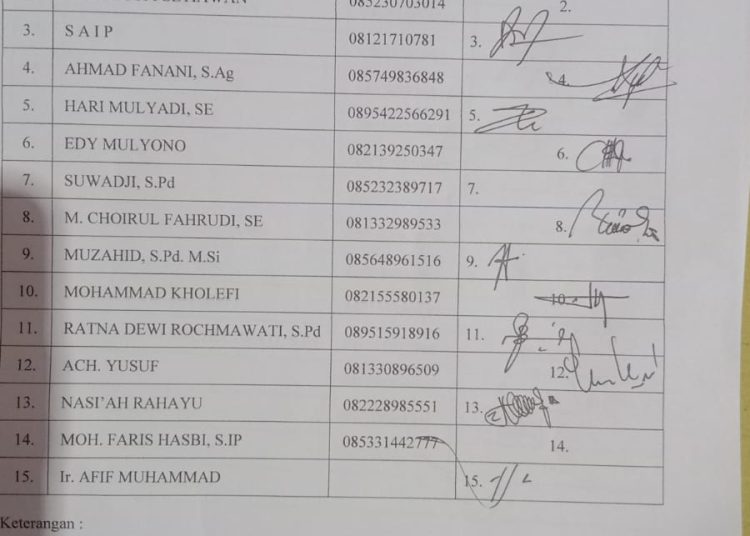 085230703014 2.
3. S A I P 08121710781 3.
4. AHMAD FANANI, S.Ag 085749836848 4.
5. HARI MULYADI, SE 0895422566291 5.
6. EDY MULYONO 082139250347 6.
7. SUWADJI, S.Pd 085232389717 7.
8. M. CHOIRUL FAHRUDI, SE 081332989533 8.
9. MUZAHID, S.Pd. M.Si 085648961516 9.
10. MOHAMMAD KHOLEFI 082155580137 10.
11. RATNA DEWI ROCHMAWATI, S.Pd 089515918916 11.
12. ACH. YUSUF 081330896509 12.
13. NASI'AH RAHAYU 082228985551 13.
14. MOH. FARIS HASBI, S.IP 085331442777 14.
15. Ir. AFIF MUHAMMAD 15.
Keterangan :